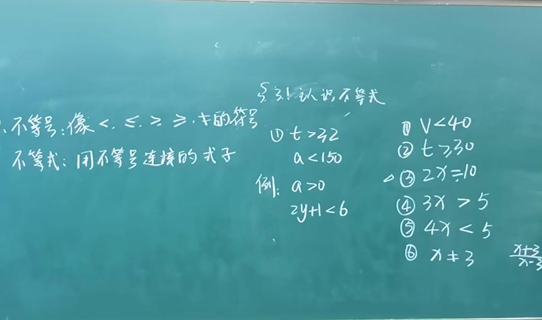 §3.1 认识不等式
不等号:像<、≤、>、≥、≠的符号
不等式:用不等号连接的式子
① t>32
a<150
例: a>0
2y+1<6
① V<40
② t≥30
③ 2x=10
④ 3x > 5
⑤ 4x < 5
⑥ x≠3
x+3/x-3